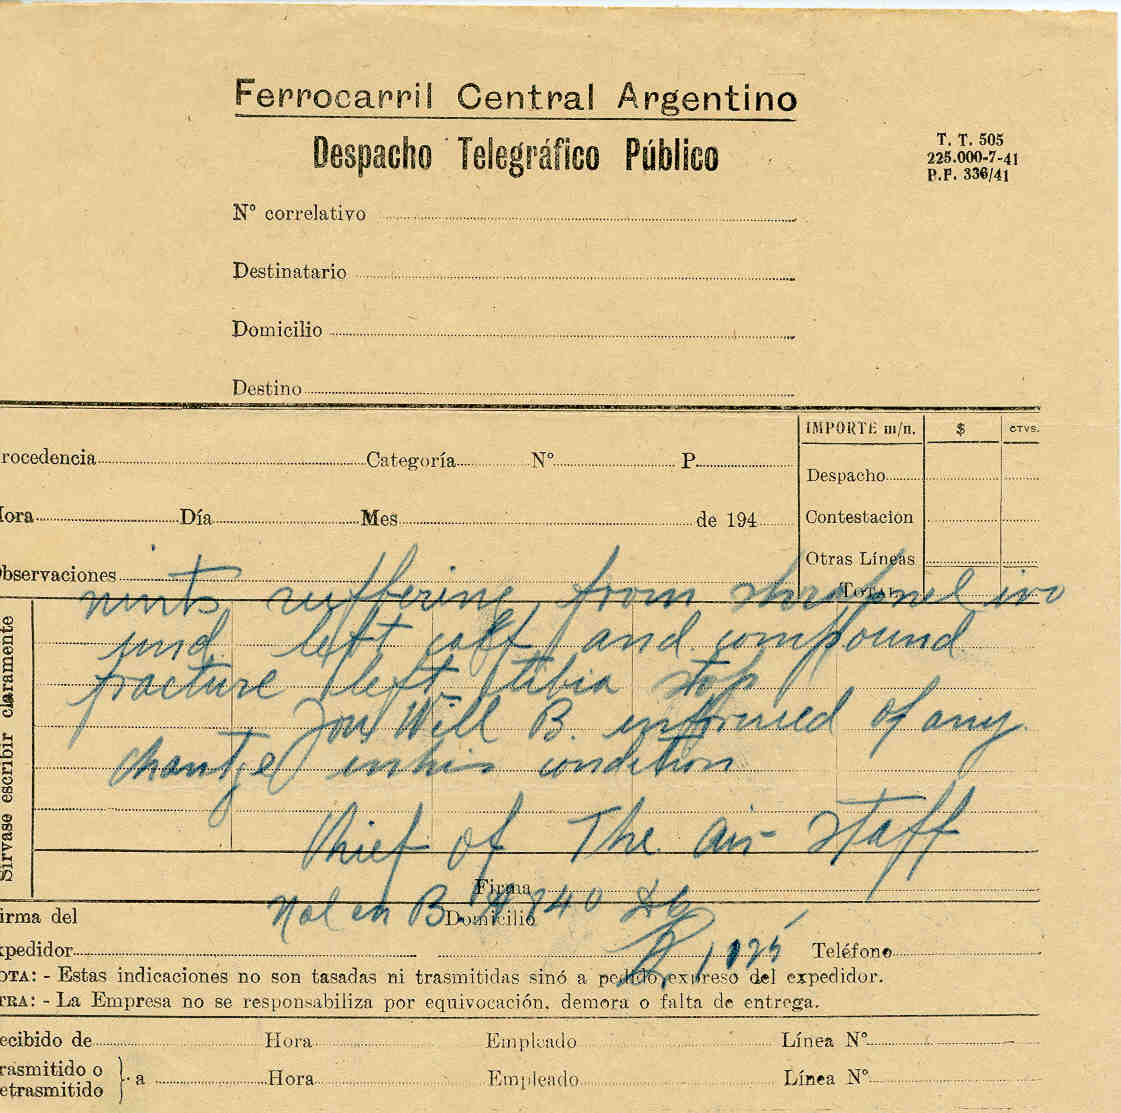 Ferrocarril Central Argentino
Despacho Telegráfico Público
T. T. 505
225.000-7-41
P.P. 336/41
Nº correlativo
Destinatario
Domicilio
Destino
IMPORTE m/n. $ CTVS.
rocedencia Categoría Nº P.
Despacho
ora Día Mes de 194
Contestación
Otras Líneas
bservaciones
TOTAL
nints suffering from shrapnel wo
und left calf and compound
fracture left tibia stop
You Will B. informed of any
change in his condition
Chief of The air staff
Sírvase escribir claramente
Firma
Nol en B. A 840
Domicilio
irma del
xpedidor Teléfono
1925
OTA: - Estas indicaciones no son tasadas ni trasmitidas sinó a pedido expreso del expedidor.
TRA: - La Empresa no se responsabiliza por equivocación, demora o falta de entrega.
ecibido de Hora Empleado Línea Nº
rasmitido o
etrasmitido } a Hora Empleado Línea Nº